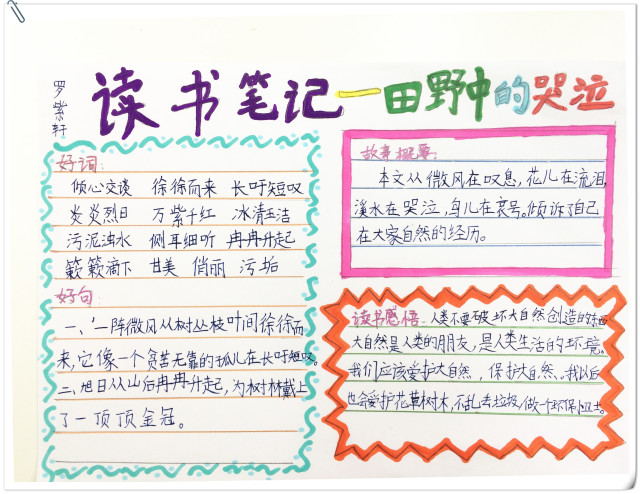 罗紫轩
读书笔记一田野中的哭泣
好词:
倾心交谈 徐徐而来 长吁短叹
炎炎烈日 万紫千红 冰清玉洁
污泥浊水 侧耳细听 冉冉升起
簌簌滴下 甘美 俏丽 污垢
好句:
一、一阵微风从树丛枝叶间徐徐而
来,它像一个贫苦无靠的孤儿在长吁短叹。
二、旭日从山后冉冉升起,为树林戴上
了一顶顶金冠。
故事概要:
本文从微风在叹息,花儿在流泪,
溪水在哭泣,鸟儿在哀号。倾诉了自己
在大家自然的经历。
读书感悟:人类不要破坏大自然创造的东西
大自然是人类的朋友,是人类生活的环境。
我们应该爱护大自然,保护大自然。我以后
也会爱护花草树木,不乱丢垃圾,做个环保卫士。